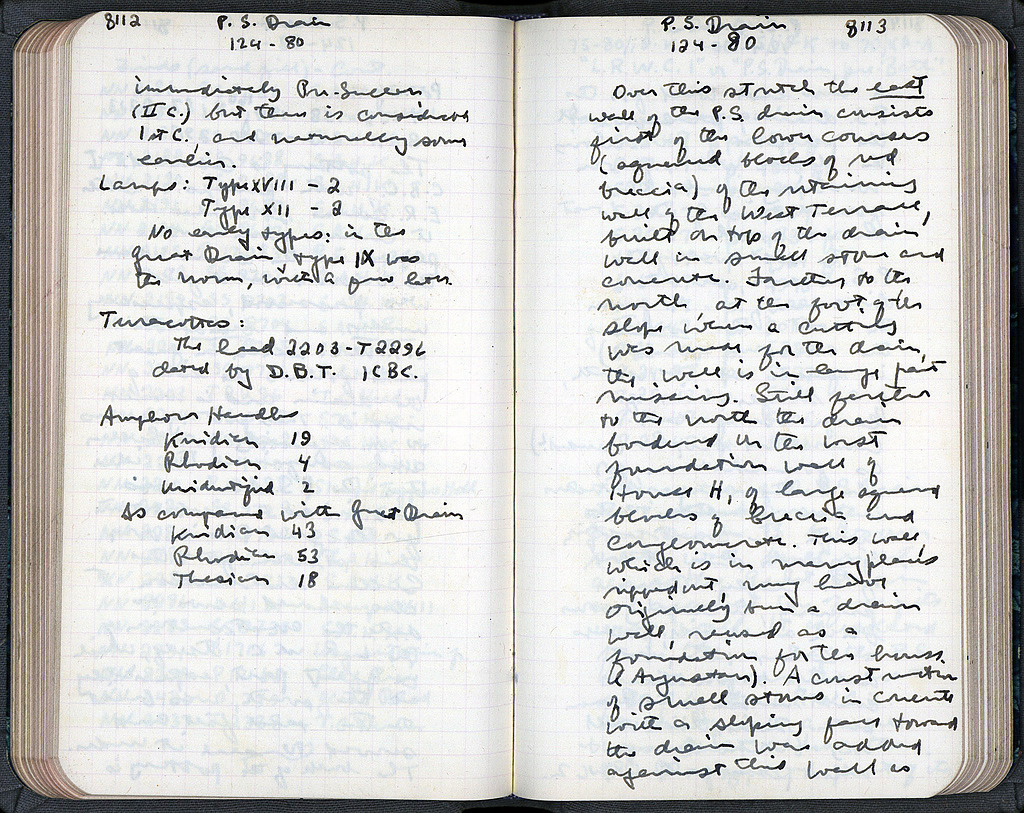 8112 P. S. Drain
124 - 80
immediately Pre-Sullan
(II C.) but there is considerable
1st C., and naturally some
earlier.
Lamps: Type XVIII - 2
Type XII - 2
No early types; in the
Great Drain type IX was
the norm, with a few later.
Terracottas:
The head 2203 - T2296
dated by D.B.T. 1CBC.
Amphora Handles
Knidian 19
Rhodian 4
Unidentified 2
As compared with Great Drain
Knidian 43
Rhodian 53
Thasian 18
P. S. Drain 8113
124 - 80
Over this stretch the east
wall of the P.S. drain consists
first of the lower courses
(squared blocks of red
breccia) of the retaining
wall of the West Terrace,
built on top of the drain
wall in small stone and
concrete. Farther to the
north at the foot of the
slope where a cutting
was made for the drain,
this wall is in large part
missing. Still farther
to the north the drain
bordered on the west
foundation wall of
House H, of large squared
blocks of breccia and
conglomerate. This wall,
which is in many places
ripped out, may have
originally been a drain
wall reused as a
foundation for the house
(Augustan). A construction
of small stones in cement
with a sloping face toward
the drain was added
against this wall as